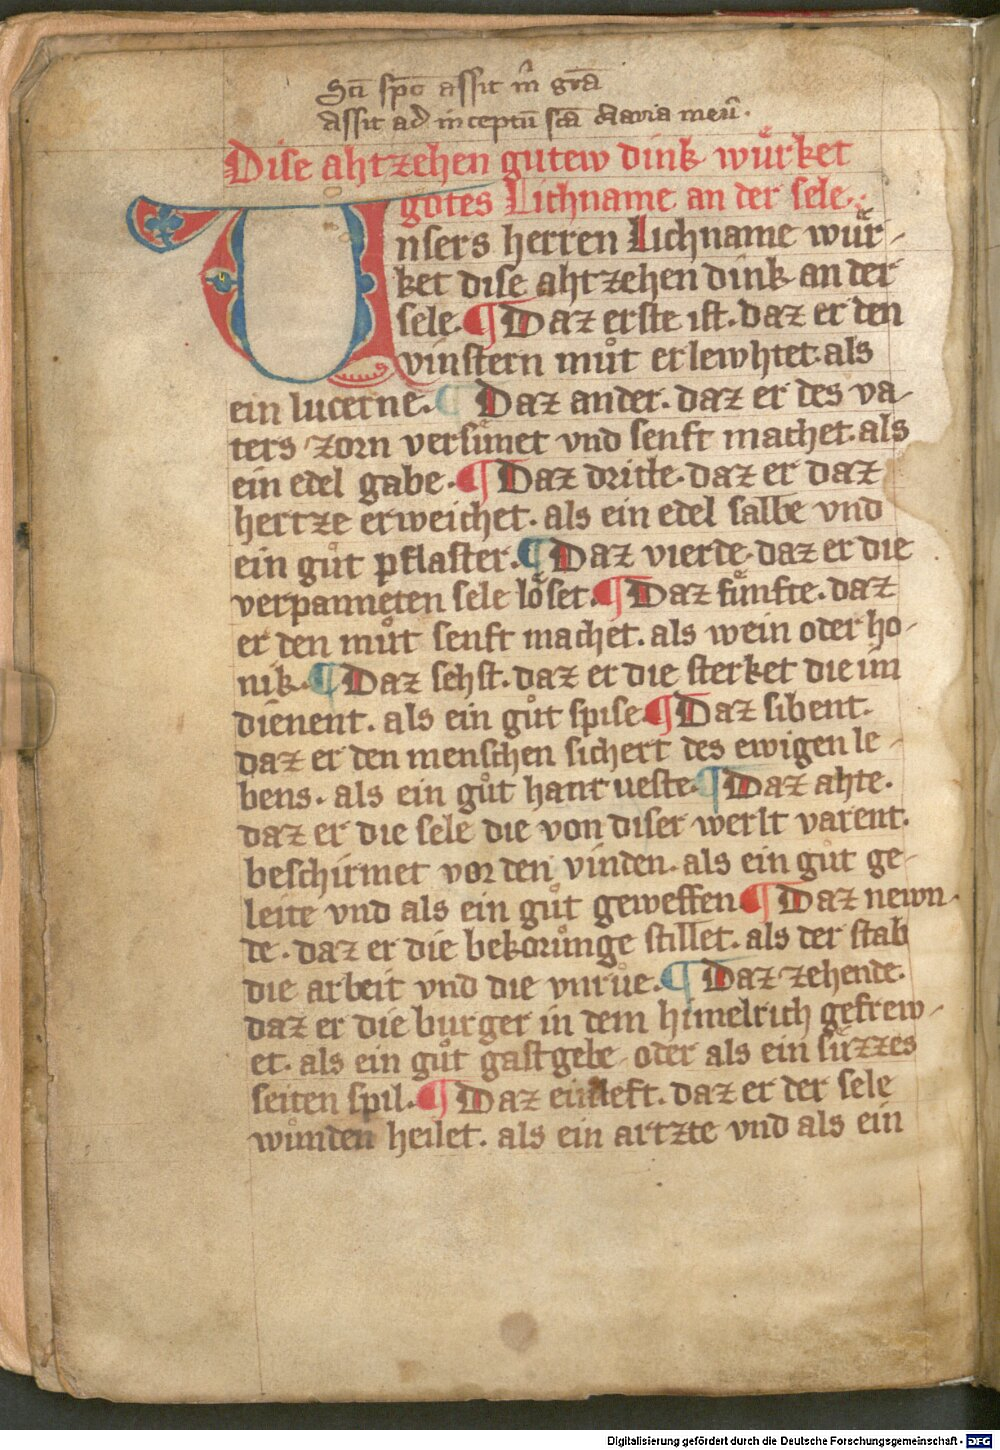 Sci spc assit m gra
Assit ad inceptu sca Maria meu.
Dise ahtzehen gutew dink wuͤrket
gotes Lichname an der sele.
Unsers herren Lichname wuͤr-
ket dise ahtzehen dink an der
sele. ¶ Daz erste ist. daz er den
vinstern muͦt erlewhtet. als
ein lucerne. ¶ Daz ander. daz er des va-
ters zorn versuͤnet vnd senft machet. als
ein edel gabe. ¶ Daz dritte. daz er daz
hertze erweichet. als ein edel salbe vnd
ein guͦt pflaster. ¶ Daz vierde. daz er die
verpanneten sele loͤset. ¶ Daz fuͤnfte. daz
er den muͦt senft machet. als wein oder ho-
nik. ¶ Daz sehst. daz er die sterket die im
dienent. als ein guͦt spise. ¶ Daz sibent.
daz er den menschen sichert des ewigen le-
bens. als ein guͦt hantueste. ¶ Daz ahte.
daz er die sele die von diser werlt varent.
beschirmet vor den vinden. als ein guͦt ge-
leite vnd als ein guͦt geweffen ¶ Daz newn-
de. daz er die bekoruͦnge stillet. als der stab
die arbeit vnd die vnruͦe. ¶ Daz zehende.
daz er die burger in dem himelrich gefrew-
et. als ein guͦt gastgebe. oder als ein suͤzzes
seiten spil. ¶ Daz einleft. daz er der sele
wuͦnden heilet. als ein artzte vnd als ein
Digitalisierung gefördert durch die Deutsche Forschungsgemeinschaft - DFG